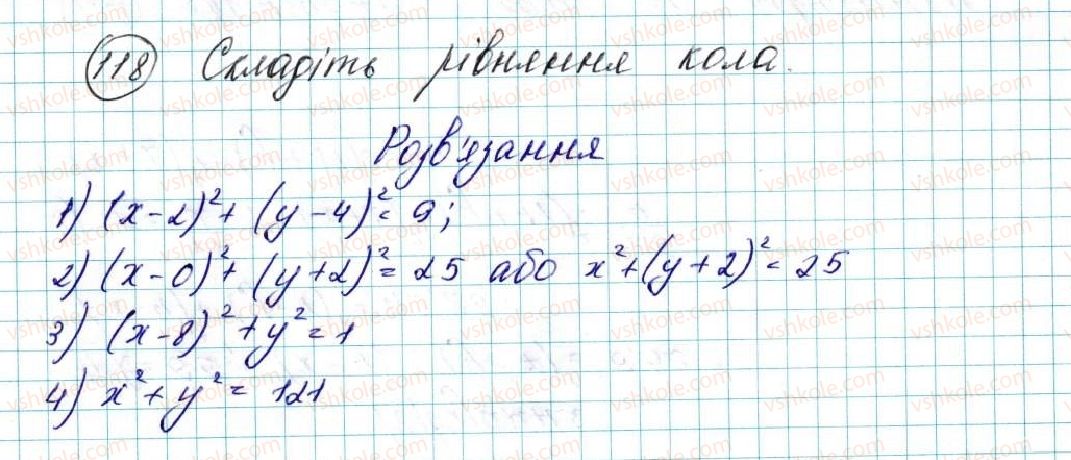 118 Складіть рівняння кола.
Розв'язання
1) (x-2)²+(y-4)²=9;
2) (x-0)²+(y+2)²=25 або x²+(y+2)²=25
3) (x-8)²+y²=1
4) x²+y²=121